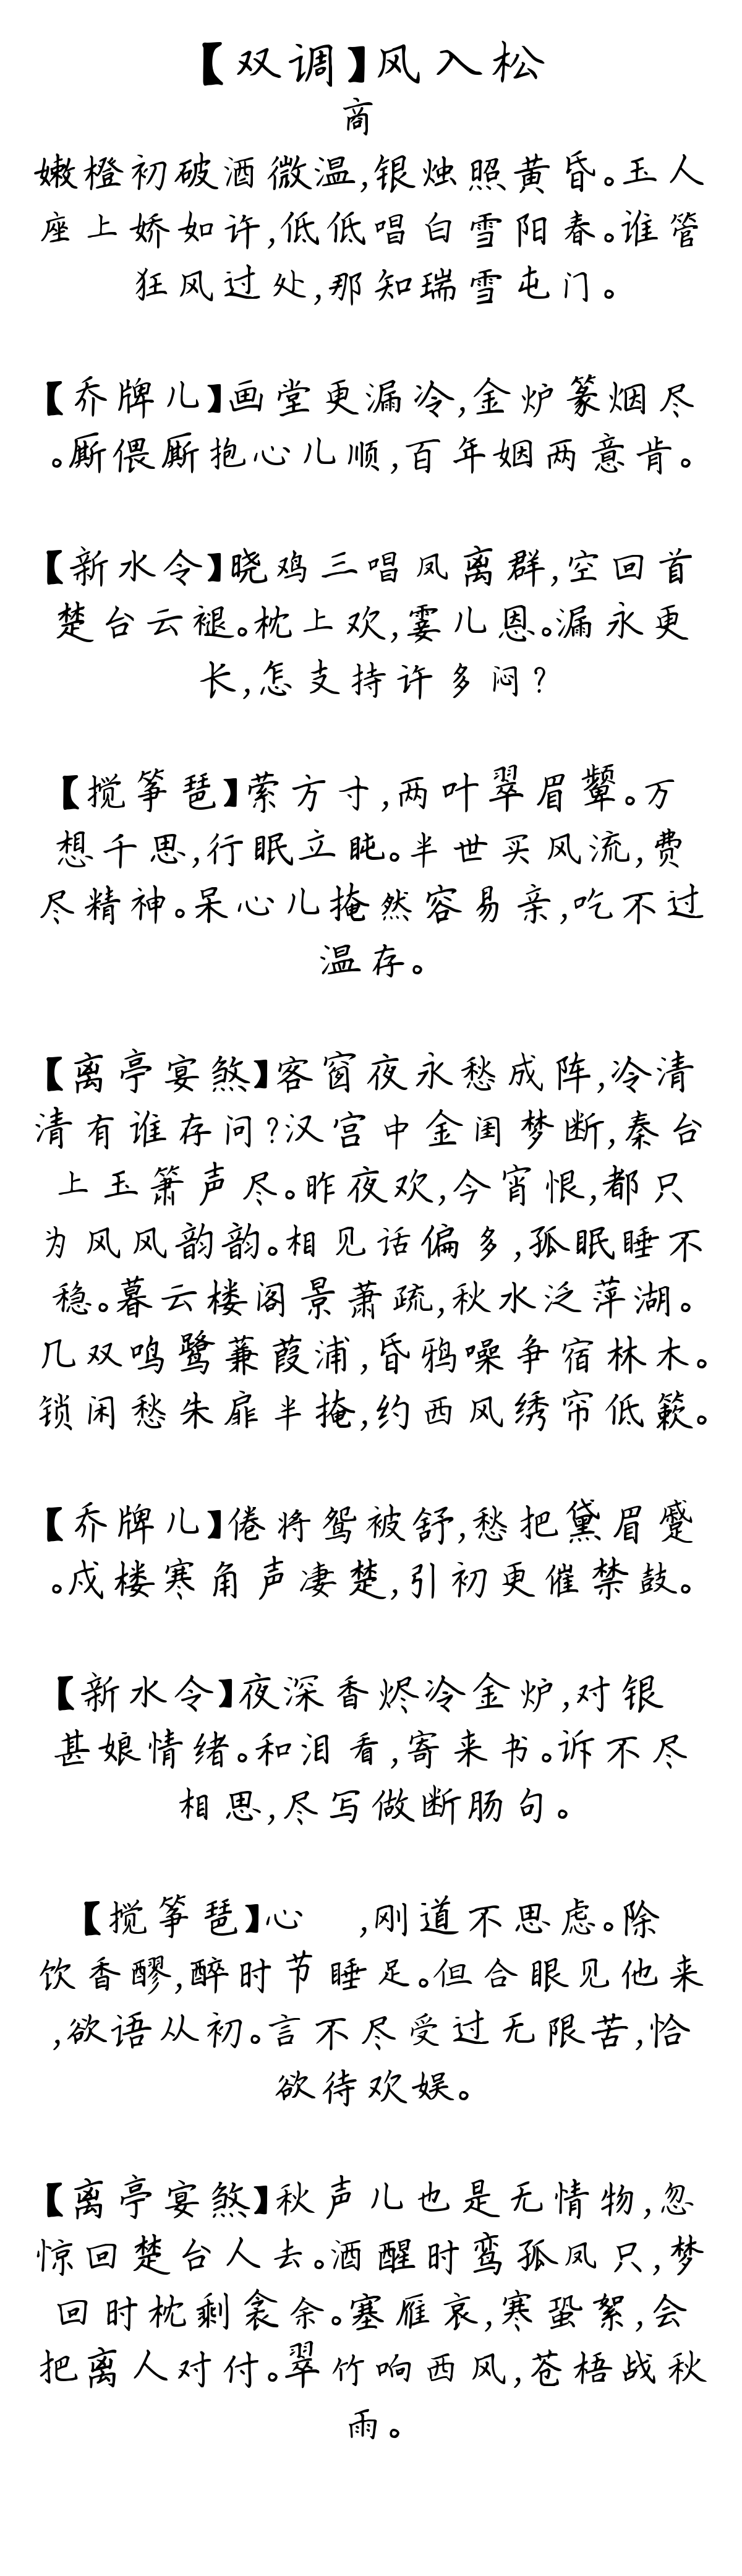 【双调】风入松
商
嫩橙初破酒微温,银烛照黄昏。玉人
座上娇如许,低低唱白雪阳春。谁管
狂风过处,那知瑞雪屯门。
【乔牌儿】画堂更漏冷,金炉篆烟尽
。厮偎厮抱心儿顺,百年姻两意肯。
【新水令】晓鸡三唱凤离群,空回首
楚台云褪。枕上欢,霎儿恩。漏永更
长,怎支持许多闷?
【搅筝琶】萦方寸,两叶翠眉颦。万
想千思,行眠立盹。半世买风流,费
尽精神。呆心儿掩然容易亲,吃不过
温存。
【离亭宴煞】客窗夜永愁成阵,冷清
清有谁存问?汉宫中金闺梦断,秦台
上玉箫声尽。昨夜欢,今宵恨,都只
为风风韵韵。相见话偏多,孤眠睡不
稳。暮云楼阁景萧疏,秋水泛萍湖。
几双鸣鹭蒹葭浦,昏鸦噪争宿林木。
锁闲愁朱扉半掩,约西风绣帘低簌。
【乔牌儿】倦将鸳被舒,愁把黛眉蹙
。戍楼寒角声凄楚,引初更催禁鼓。
【新水令】夜深香烬冷金炉,对银
甚娘情绪。和泪看,寄来书。诉不尽
相思,尽写做断肠句。
【搅筝琶】心 ,刚道不思虑。除
饮香醪,醉时节睡足。但合眼见他来
,欲语从初。言不尽受过无限苦,恰
欲待欢娱。
【离亭宴煞】秋声儿也是无情物,忽
惊回楚台人去。酒醒时鸾孤凤只,梦
回时枕剩衾余。塞雁哀,寒蛩絮,会
把离人对付。翠竹响西风,苍梧战秋
雨。